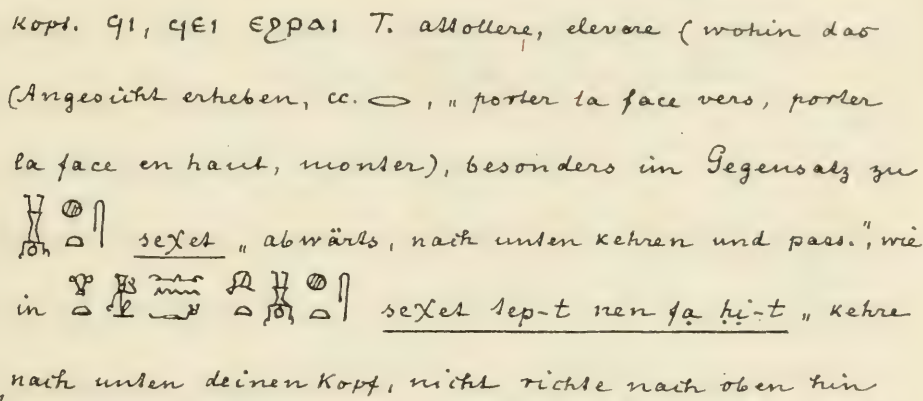 Kopt. ϥⲓ, ϥⲉⲓ ⲉϩⲣⲁⲓ T. attollere, elevare (wohin das
(Angesicht erheben, cc. 𓂋, „porter la face vers, porter
la face en haut, monter), besonders im Gegensatz zu
seχet „abwärts, nach unten kehren und pass.", wie
in seχet tep-t nen fa ḥi-t „kehre
nach unten deinen Kopf, nicht richte nach oben hin